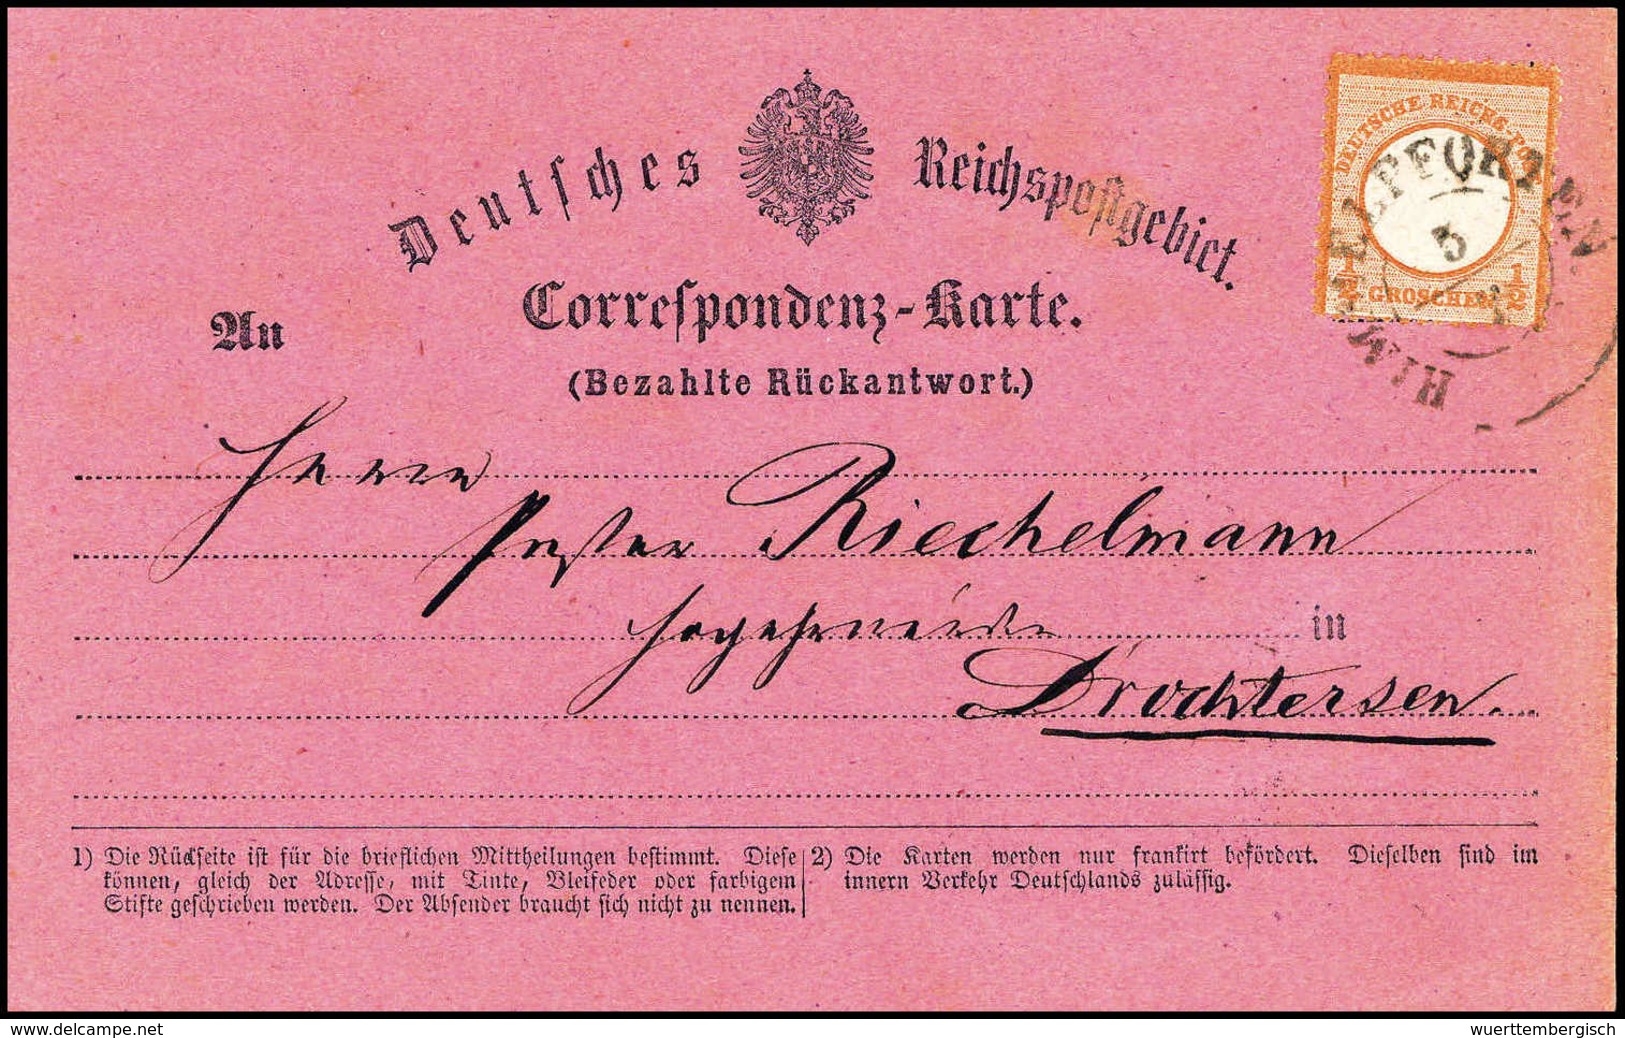 Deutsches Reichspostgebiet.
Correspondenz-Karte.
(Bezahlte Rückantwort.)
An
DEUTSCHE REICHS-POST
1/2 GROSCHEN 1/2
HIMMELPFORTEN
5
Herrn
Pastor Riechelmann
in
Drochtersen.
1) Die Rückseite ist für die brieflichen Mittheilungen bestimmt. Diese
können, gleich der Adresse, mit Tinte, Bleifeder oder farbigem
Stifte geschrieben werden. Der Absender braucht sich nicht zu nennen.
2) Die Karten werden nur frankirt befördert. Dieselben sind im
innern Verkehr Deutschlands zulässig.
www.delcampe.net
wuerttembergisch